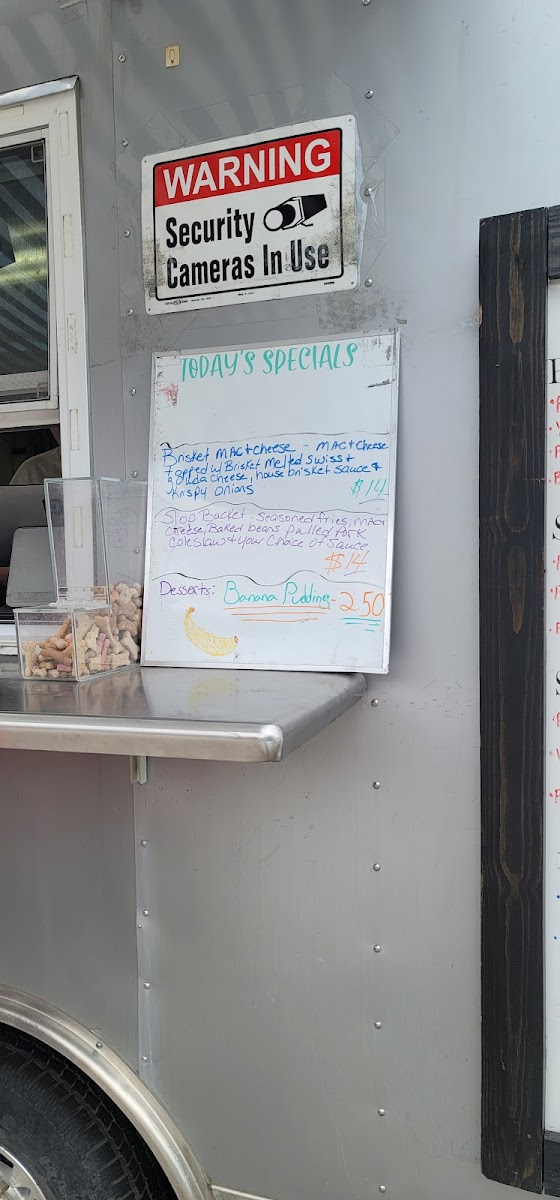 WARNING
Security
Cameras In Use
TODAY'S SPECIALS
Brisket MAC+Cheese - MAC+Cheese
Topped w/ Brisket Melted Swiss +
gouda Cheese, house brisket sauce +
Krispy Onions
$14
Slop Bucket - Seasoned fries, MAC+
Cheese, Baked beans, Pulled Pork
Coleslaw + your Choice of Sauce
$14
Desserts: Banana Pudding - 2.50